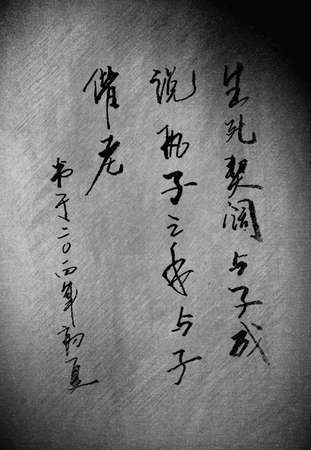 生死契阔与子成
说执子之手与子
偕老
书于二〇一四年初夏